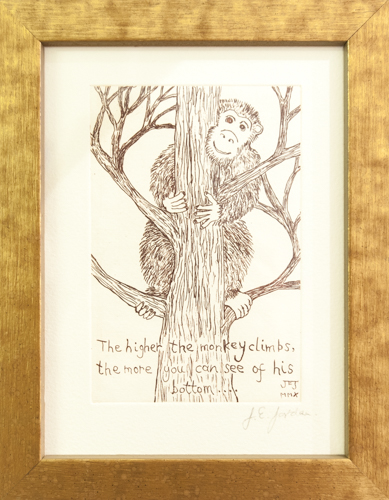 The higher the monkey climbs,
the more you can see of his
bottom....
JEJ
MMX
J. E. Jordan